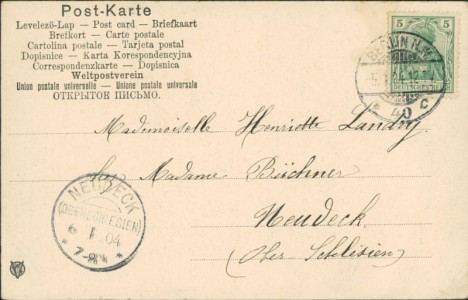 Post-Karte
Levelezö-Lap — Post card — Briefkaart
Brefkort — Carte postale
Cartolina postale — Tarjeta postal
Dopisnice — Karta Korespondencyjna
Correspondenzkarte — Dopisnica
Weltpostverein
Union postale universelle — Unione postale universale
ОТКРЫТОЕ ПИСЬМО.
5 5
BERLIN N.W.
40 c
Mademoiselle Henriette Landry
chez Madame Büchner
Neudeck
(Ober-Schlesien)
NEUDECK
(OBERSCHLESIEN)
6 1 04
7-8V